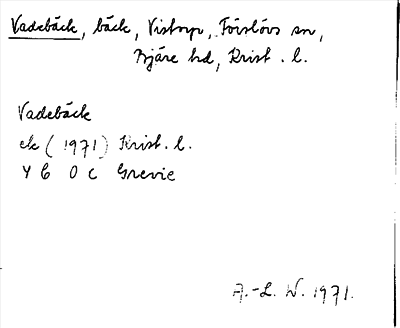 Vadebäck, bäck, Vistorp, Förslövs sn,
Bjäre hd, Krist. l.
Vadebäck
ek (1971) Krist. l.
Y 6 O C Grevie
A.-L. W. 1971.